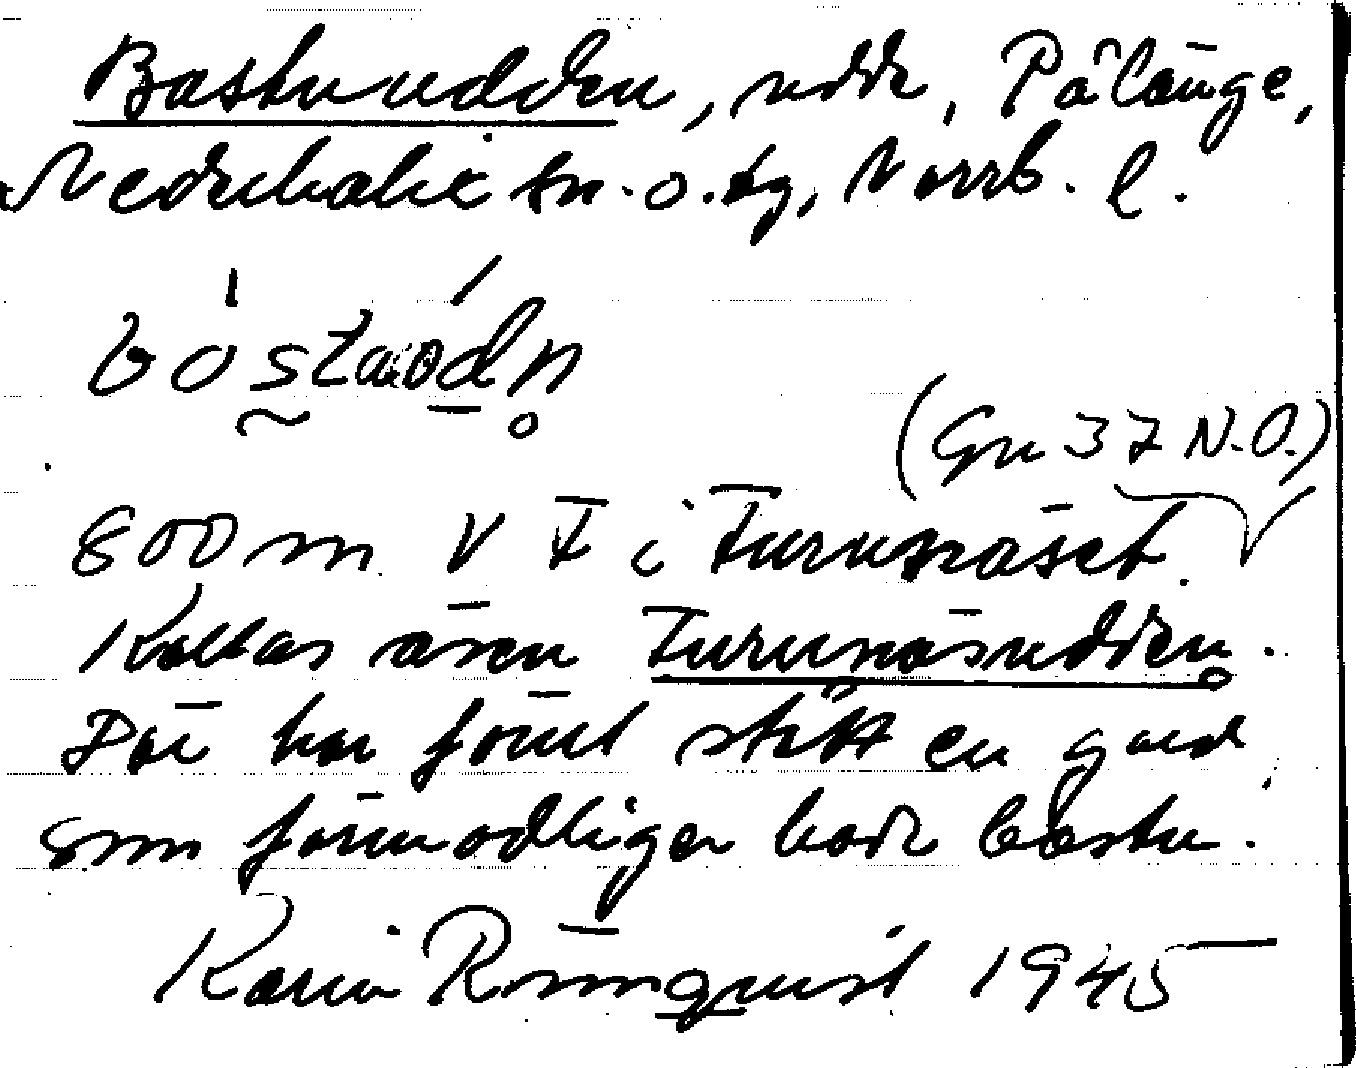 Bastuudden, udde, Pålänge,
Nederkalix sn. o. tg, Norrb. l.
(Gn 37 N.O.)
800 m V T i Turunäset.
Kallas även Turunäsudden.
Där har förut stått en gård,
som förmodligen hade bastu.
Karin Rönnquist 1945